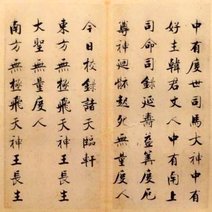 中有度世司馬大神中有
好生韓君丈人中有南上
司命司錄延壽益筭度厄
尊神迴骸起死無量度人
今日校錄諸天臨軒
東方無極飛天神王長生
大聖無量度人
南方無極飛天神王長生